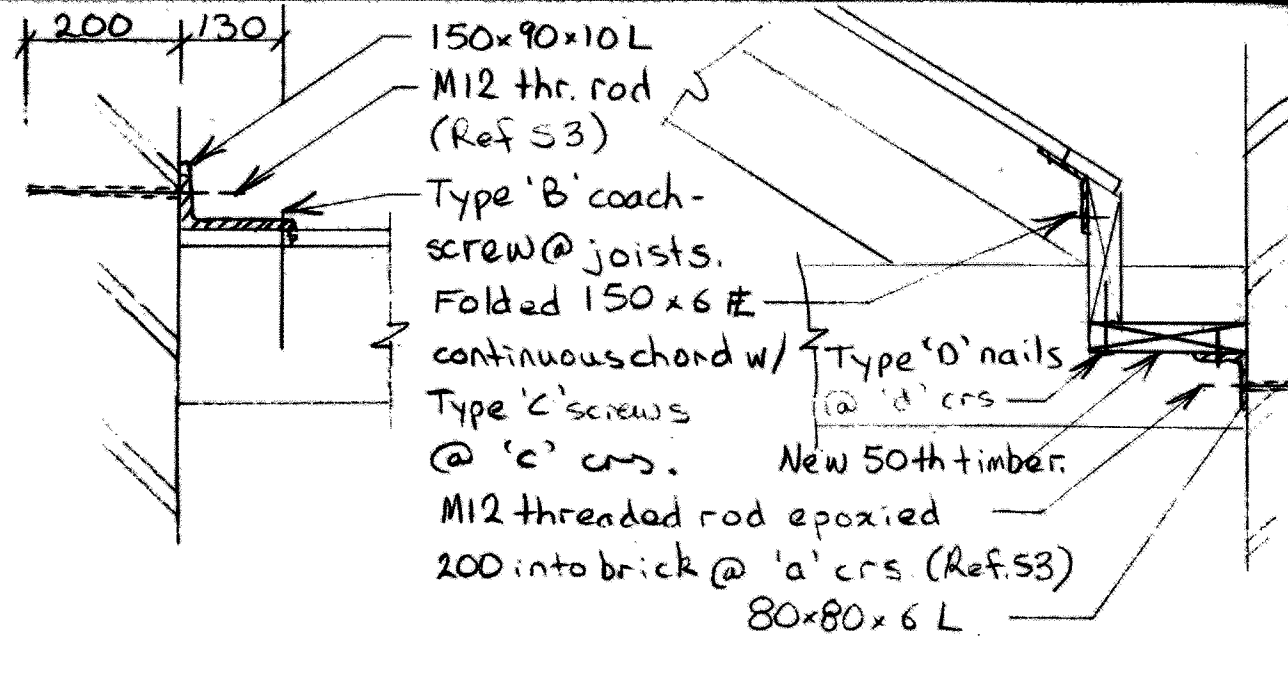 200 130
150x90x10 L
M12 thr. rod
(Ref S3)
Type 'B' coach-
screw @ joists.
Folded 150 x 6 PL
continuous chord w/
Type 'C' screws
@ 'c' crs.
Type 'D' nails
@ 'd' crs
New 50th timber.
M12 threaded rod epoxied
200 into brick @ 'a' crs. (Ref. S3)
80x80x6 L